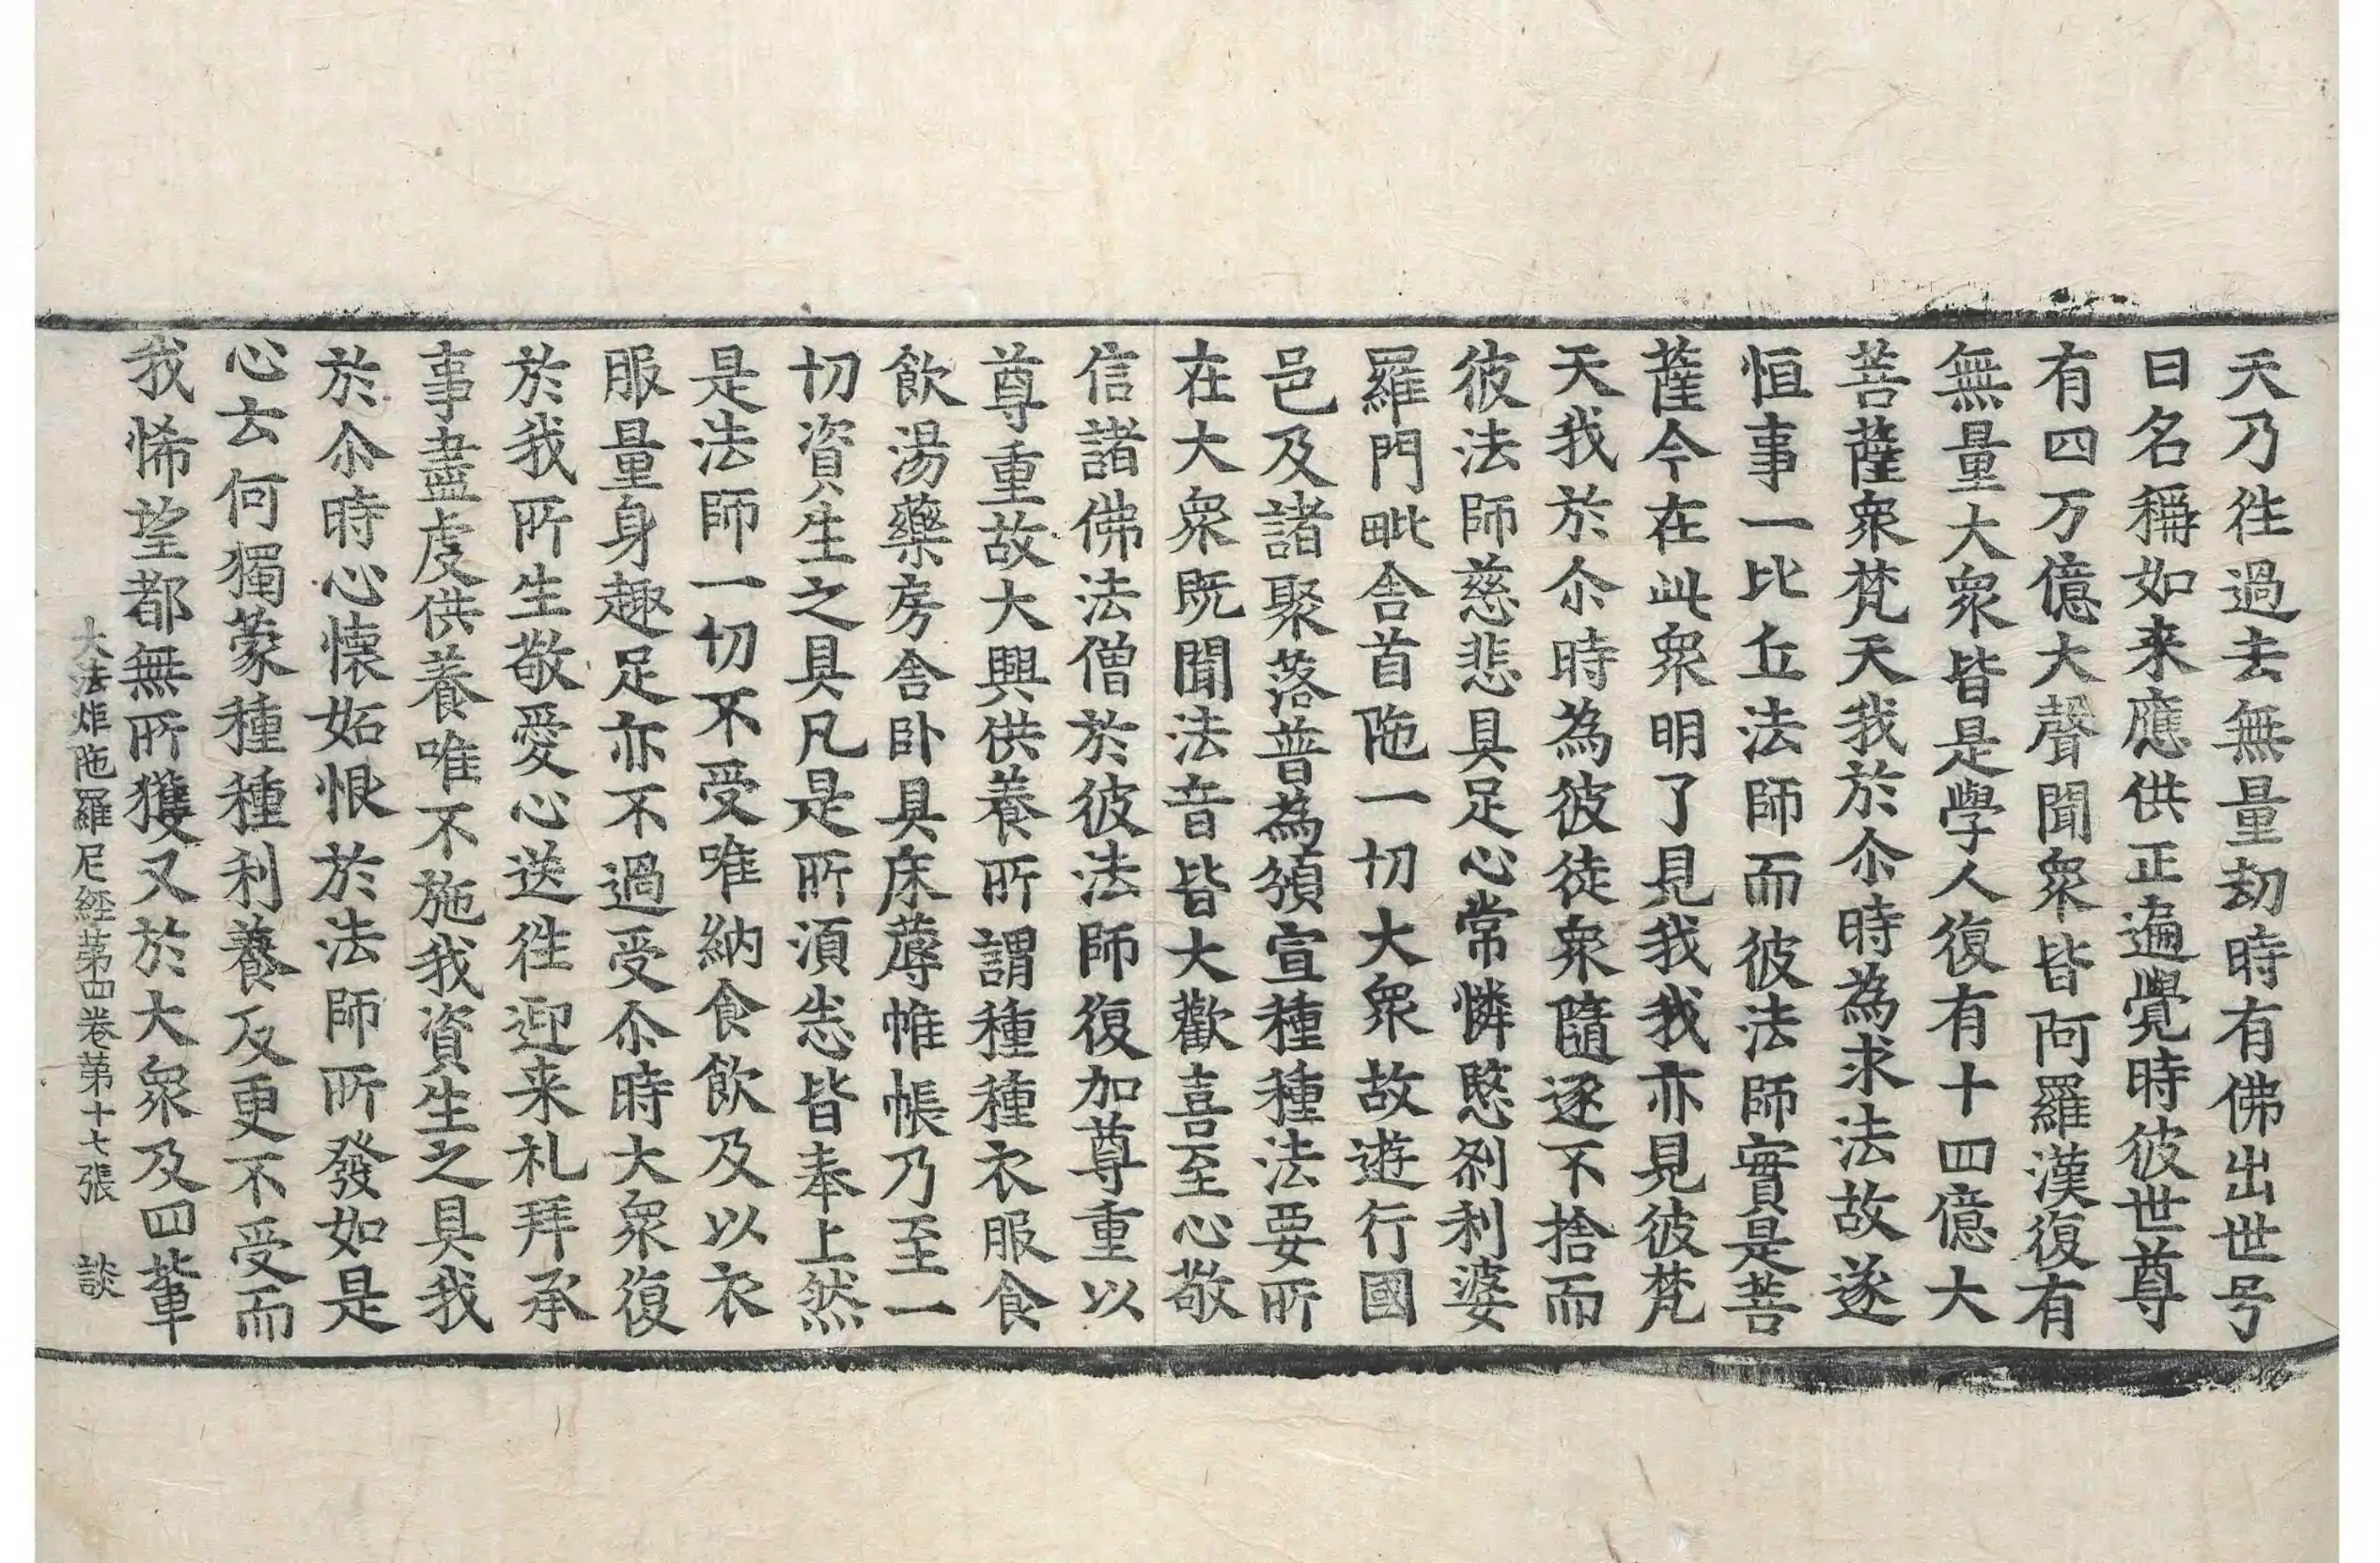 天乃徃過去無量劫時有佛出世号
曰名稱如来應供正遍覺時彼世尊
有四万億大聲聞衆皆阿羅漢復有
無量大衆皆是學人復有十四億大
菩薩衆梵天我於尒時為求法故遂
恒事一比丘法師而彼法師實是菩
薩今在此衆明了見我我亦見彼梵
天我於尒時為彼徒衆隨逐不捨而
彼法師慈悲具足心常憐愍刹利婆
羅門毗舍首陁一切大衆故遊行國
邑及諸聚落普為頒宣種種法要所
在大衆既聞法音皆大歡喜至心敬
信諸佛法僧於彼法師復加尊重以
尊重故大興供養所謂種種衣服食
飲湯藥房舍卧具床蓐帷帳乃至一
切資生之具凡是所須恙皆奉上然
是法師一切不受唯納食飲及以衣
服量身趣足亦不過受尒時大衆復
於我所生敬愛心送徃迎来礼拜承
事盡虔供養唯不施我資生之具我
於尒時心懐妬恨於法師所發如是
心去何獨蒙種種利養反更不受而
我悕望都無所獲又於大衆及四輩
大法炬陁羅尼経第四卷第十七張 談